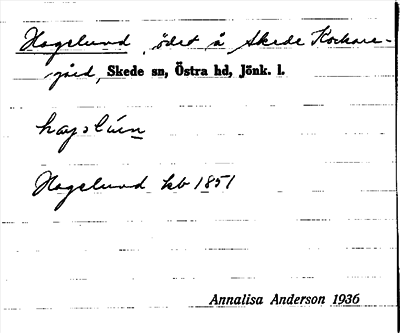 Hagslund, ödet å Skede Kockare-
gård, Skede sn, Östra hd, Jönk. l.
Hagslund kb 1851
Annalisa Anderson 1936